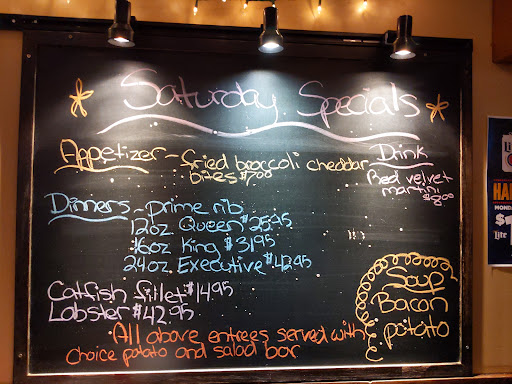 Saturday Specials
Appetizer - fried broccoli cheddar
bites $7.00
Drink
Red velvet
martini
$8.00
Dinners - prime rib
12oz Queen $25.95
16oz King $31.95
24oz. Executive $42.95
Catfish fillet $14.95
Lobster $42.95
All above entrees served with
choice potato and salad bar
Soup
Bacon
potato
MONDA
Lite